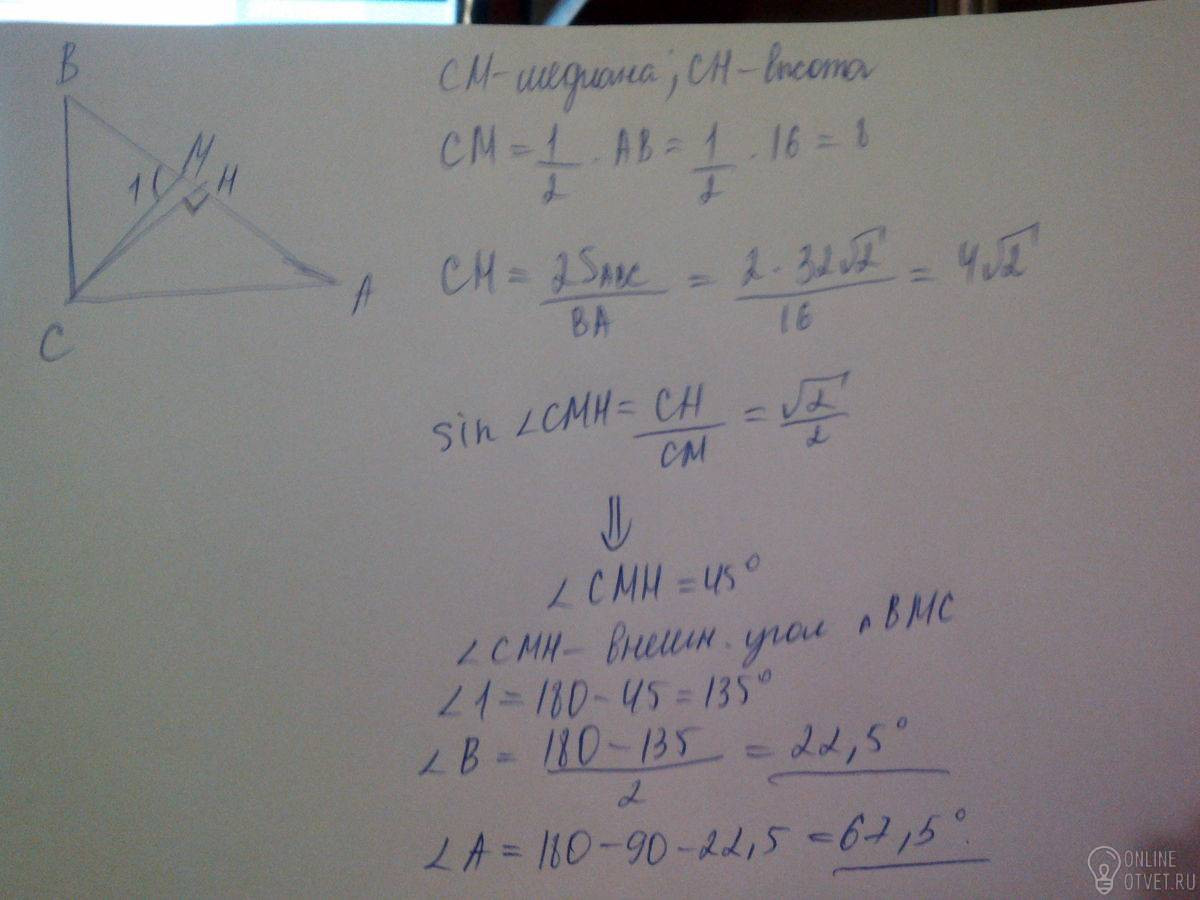 B
M
1
H
A
C
CM - медиана; CH - высота
CM = 1/2 · AB = 1/2 · 16 = 8
CH = 2S ABC / BA = 2 · 32√2 / 16 = 4√2
sin ∠CMH = CH / CM = √2 / 2
⇓
∠ CMH = 45°
∠ CMH - внешн. угол △ BMC
∠1 = 180 - 45 = 135°
∠B = 180 - 135 / 2 = 22,5°
∠A = 180 - 90 - 22,5 = 67,5°.
ONLINE
OTVET.RU